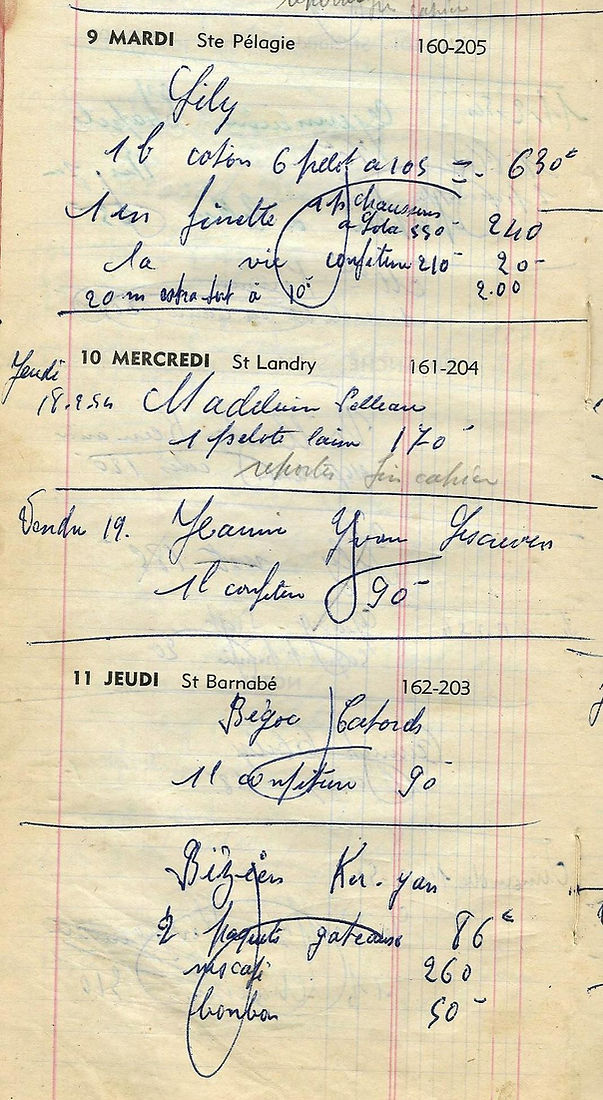 reporter fin cahier
9 MARDI Ste Pélagie 160-205
Lily
1 b coton 6 pelot a 105 = 630
1 en finette 1 p chaussons 240
a Lola 550
la vie confiture 210 20-
20 m extra fort à 10 2.00
10 MERCREDI St Landry 161-204
Jeudi
18.2.54 Madeleine
1 pelote laine 170
reporter fin cahier
Vendr 19. Jeanin Yvon
1 l confiture 90-
11 JEUDI St Barnabé 162-203
Bégoc Cabords
1 l confiture 90
Béziers Ker-yan
2 paquets gateaux 86
nescafé 260
bonbon 50-